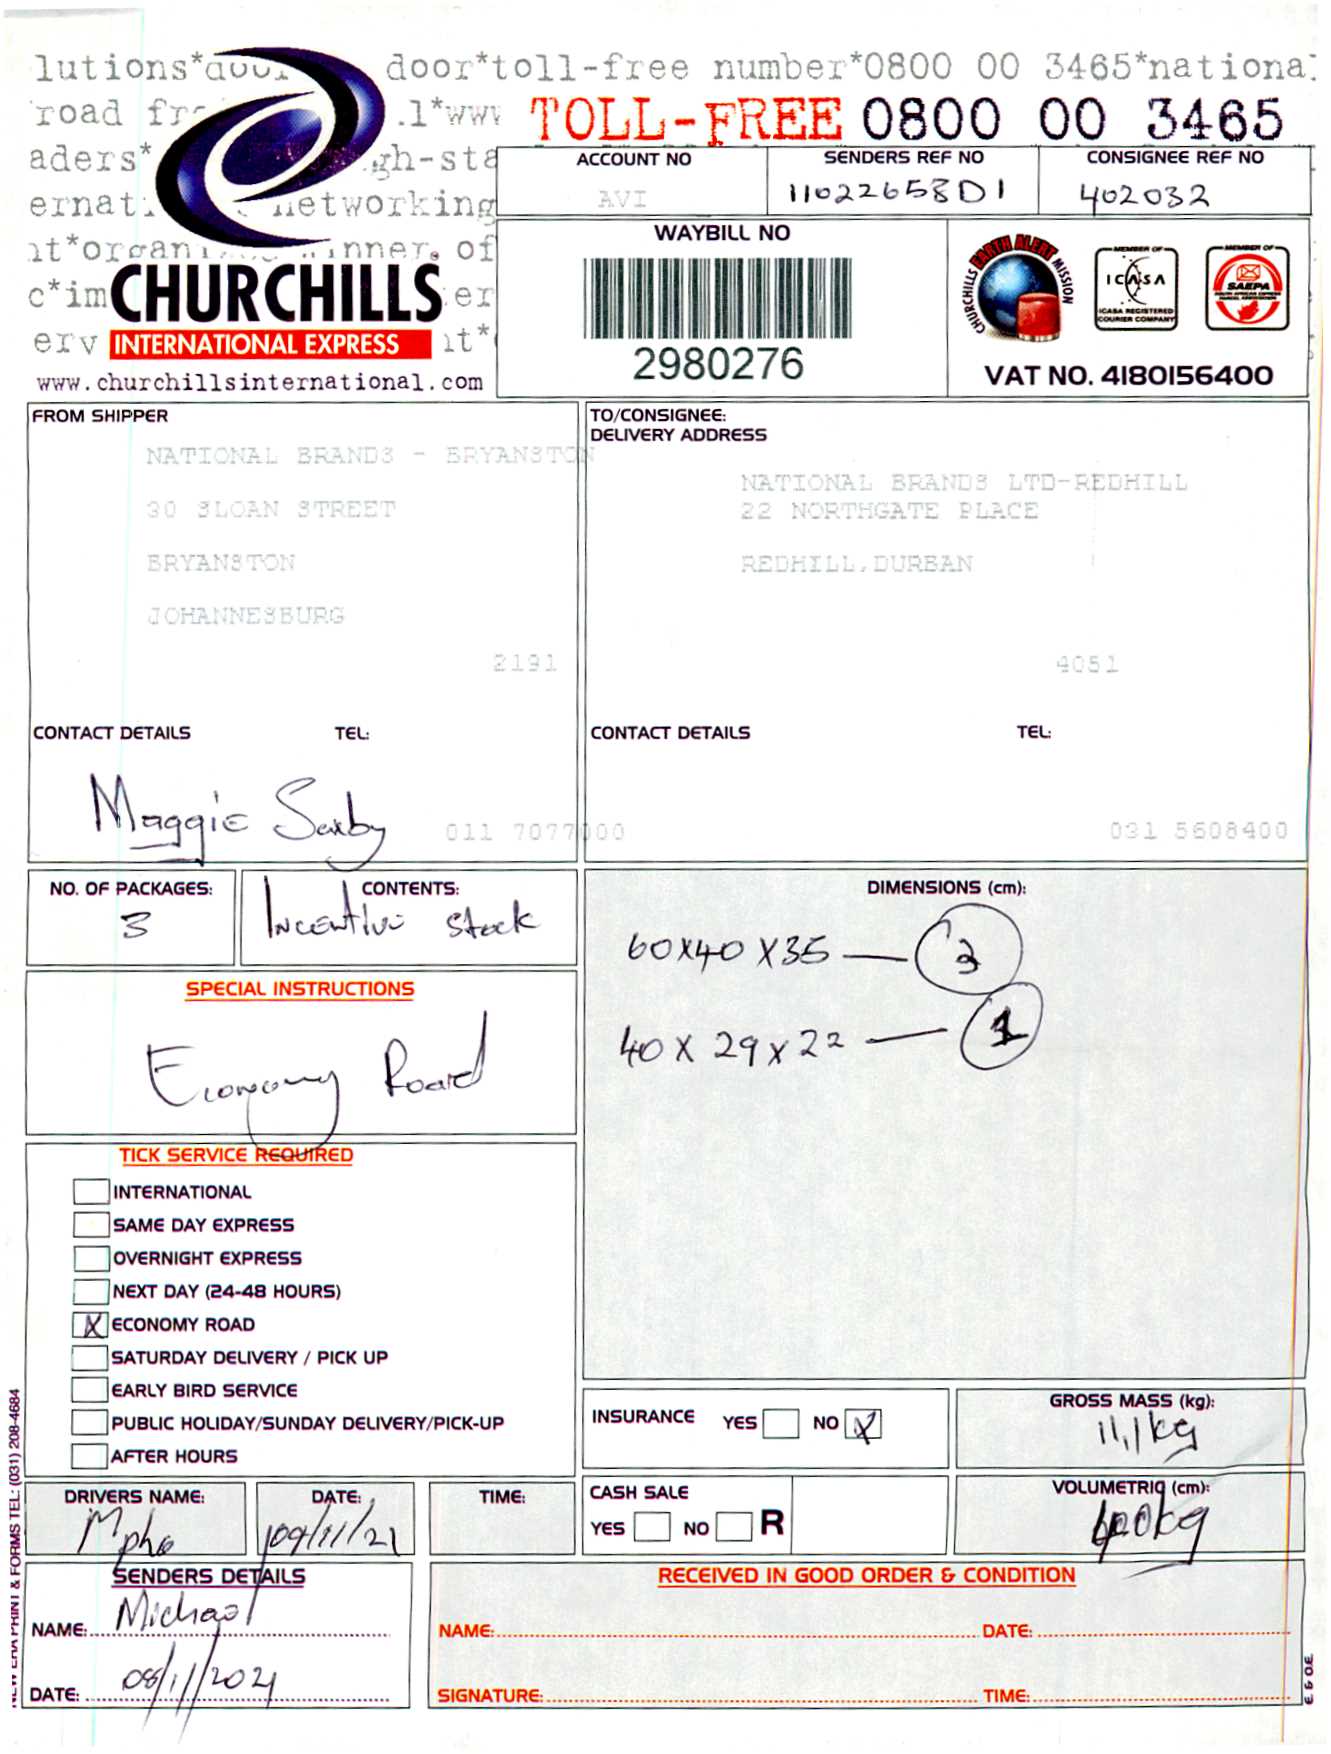 lutions*door door*toll-free number*0800 00 3465*national
road fr .l*www TOLL-FREE 0800 00 3465
aders* gh-sta
ACCOUNT NO SENDERS REF NO CONSIGNEE REF NO
AVI 11022658D1 402032
ernat networking
WAYBILL NO
nt*organi inner. of
c*im CHURCHILLS er
erv INTERNATIONAL EXPRESS nt*
www.churchillsinternational.com
2980276
CHURCHILLS EARTH ALERT MISSION
MEMBER OF
ICASA
ICASA REGISTERED
COURIER COMPANY
MEMBER OF
SAEPA
SOUTH AFRICAN EXPRESS
PARCEL ASSOCIATION
VAT NO. 4180156400
FROM SHIPPER
NATIONAL BRANDS - BRYANSTON
30 SLOAN STREET
BRYANSTON
JOHANNESBURG
2191
CONTACT DETAILS TEL:
Maggie Saxby 011 7077000
TO/CONSIGNEE:
DELIVERY ADDRESS
NATIONAL BRANDS LTD-REDHILL
22 NORTHGATE PLACE
REDHILL,DURBAN
4051
CONTACT DETAILS TEL:
031 5608400
NO. OF PACKAGES:
3
CONTENTS:
Incentive Stock
DIMENSIONS (cm):
60x40x35 — 2
40x29x22 — 1
SPECIAL INSTRUCTIONS
Economy Road
TICK SERVICE REQUIRED
INTERNATIONAL
SAME DAY EXPRESS
OVERNIGHT EXPRESS
NEXT DAY (24-48 HOURS)
X ECONOMY ROAD
SATURDAY DELIVERY / PICK UP
EARLY BIRD SERVICE
PUBLIC HOLIDAY/SUNDAY DELIVERY/PICK-UP
AFTER HOURS
INSURANCE YES NO X
GROSS MASS (kg):
11,1kg
CASH SALE
YES NO R
VOLUMETRIC (cm):
DRIVERS NAME: DATE: TIME:
Mpho 09/11/21
SENDERS DETAILS
NAME: Michael
DATE: 08/11/2021
RECEIVED IN GOOD ORDER & CONDITION
NAME: DATE:
SIGNATURE: TIME:
E & O.E
NEW ERA PRINT & FORMS TEL: (031) 208-4684